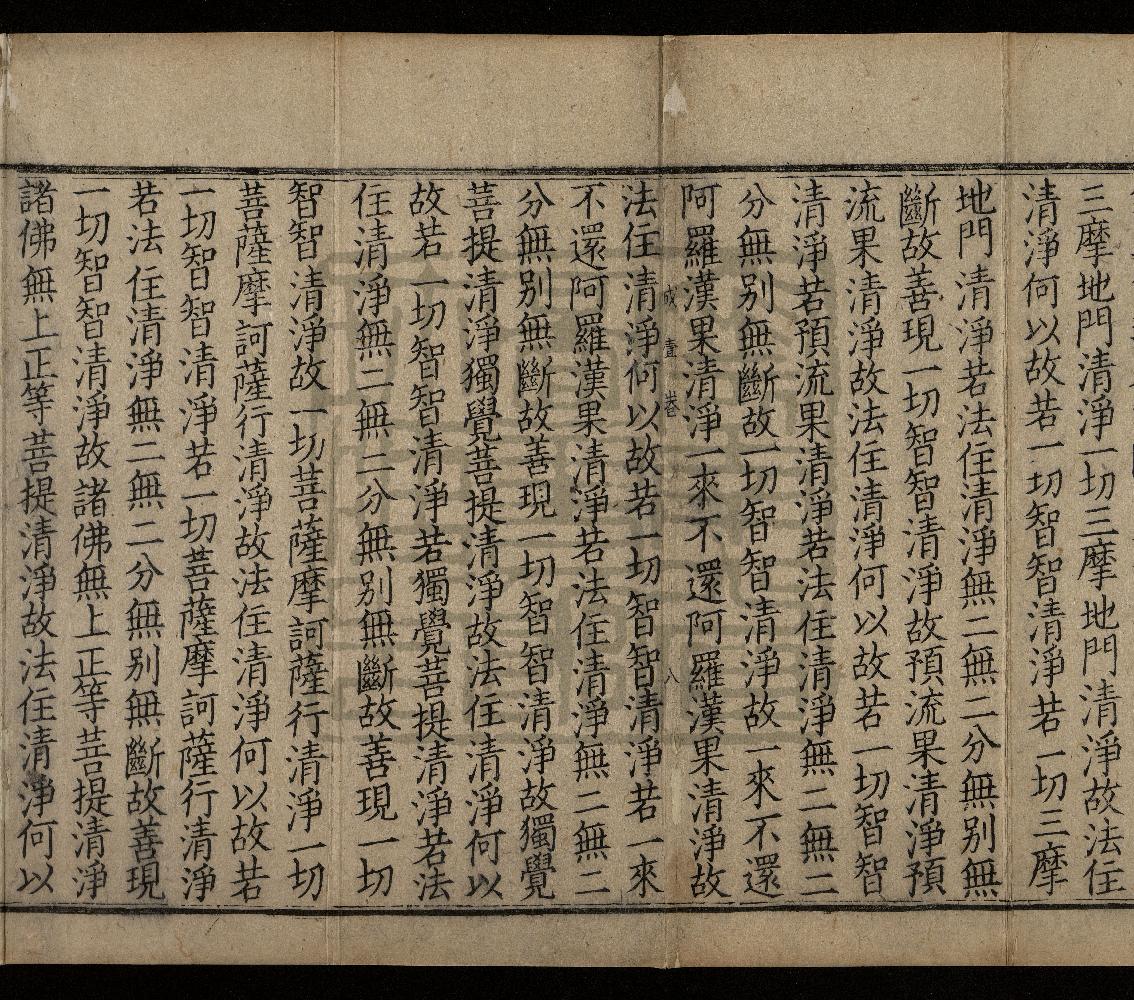 三摩地門清淨一切三摩地門清淨故法住
清淨何以故若一切智智清淨若一切三摩
地門清淨若法住清淨無二無二分無別無
斷故善現一切智智清淨故預流果清淨預
流果清淨故法住清淨何以故若一切智智
清淨若預流果清淨若法住清淨無二無二
分無別無斷故一切智智清淨故一來不還
阿羅漢果清淨一來不還阿羅漢果清淨故
壹 卷 八
法住清淨何以故若一切智智清淨若一來
不還阿羅漢果清淨若法住清淨無二無二
分無別無斷故善現一切智智清淨故獨覺
菩提清淨獨覺菩提清淨故法住清淨何以
故若一切智智清淨若獨覺菩提清淨若法
住清淨無二無二分無別無斷故善現一切
智智清淨故一切菩薩摩訶薩行清淨一切
菩薩摩訶薩行清淨故法住清淨何以故若
一切智智清淨若一切菩薩摩訶薩行清淨
若法住清淨無二無二分無別無斷故善現
一切智智清淨故諸佛無上正等菩提清淨
諸佛無上正等菩提清淨故法住清淨何以